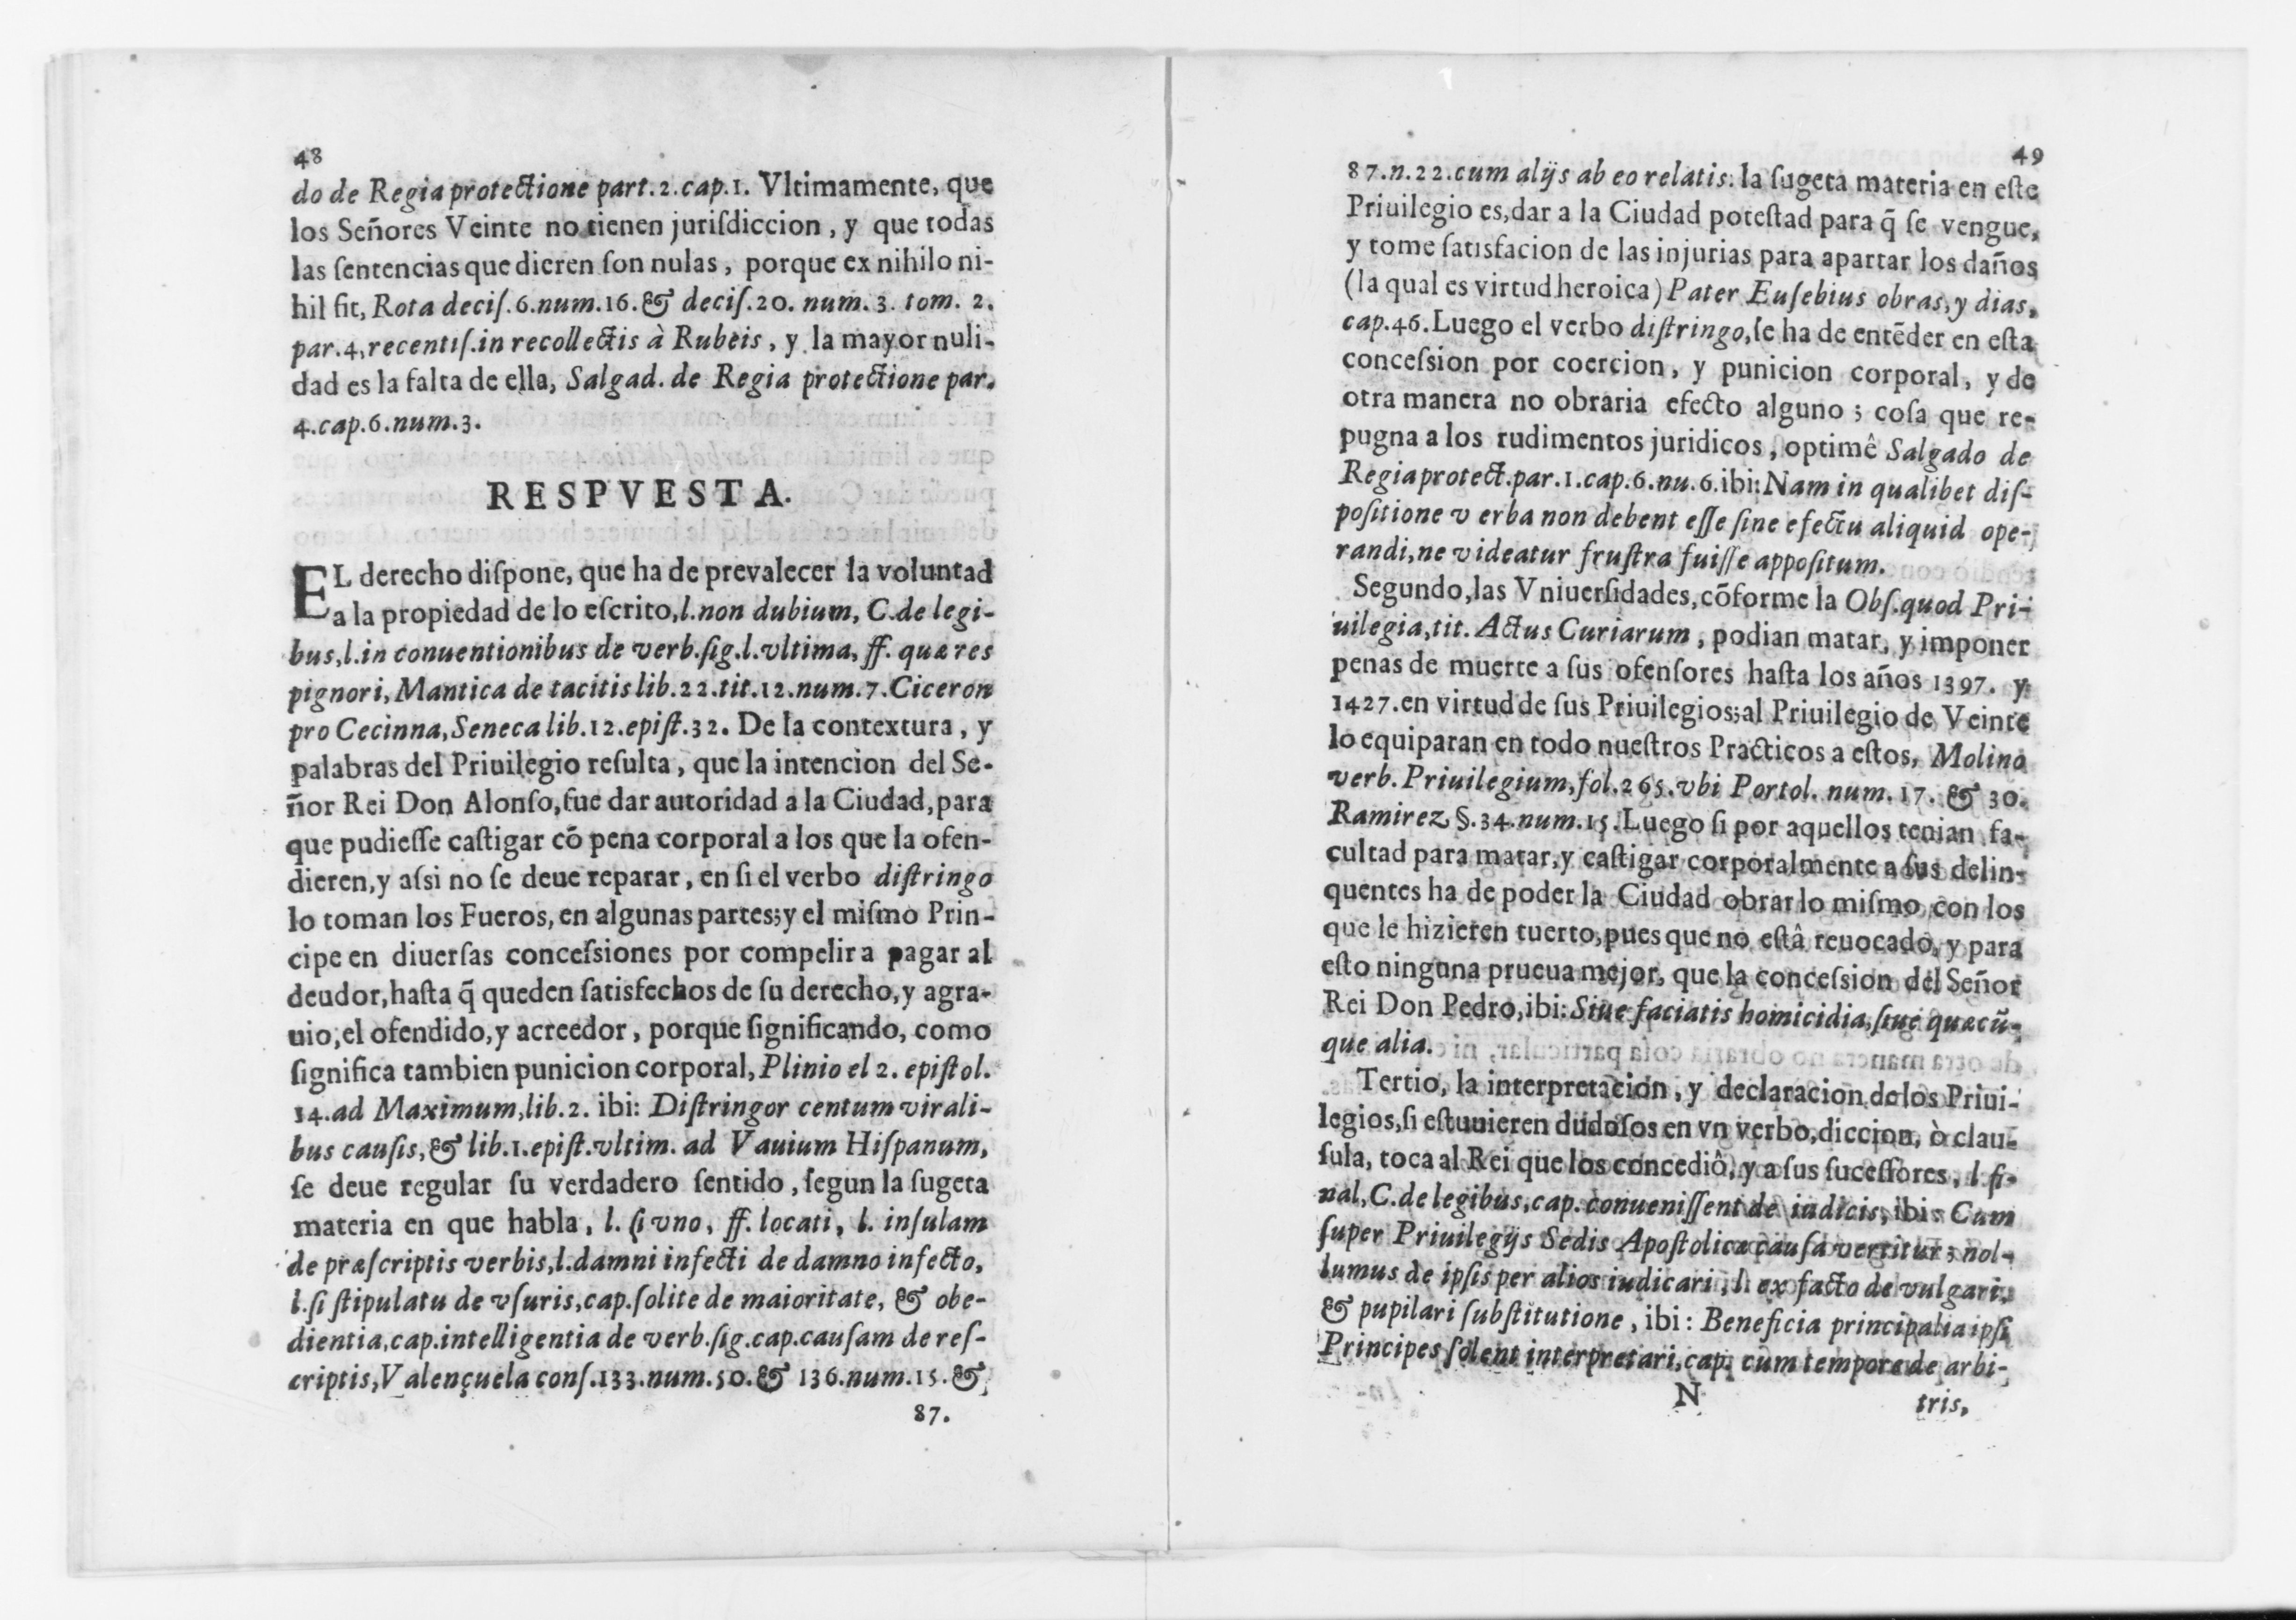 48
do de Regia protectione part.2.cap.1. Vltimamente, que
los Señores Veinte no tienen juriſdiccion, y que todas
las ſentencias que dieren ſon nulas, porque ex nihilo ni-
hil fit, Rota deciſ.6.num.16.& deciſ.20. num. 3. tom. 2.
par.4,recentiſ.in recollectis à Rubeis, y la mayor nuli-
dad es la falta de ella, Salgad. de Regia protectione par.
4.cap.6.num.3.
RESPVESTA.
EL derecho diſpone, que ha de prevalecer la voluntad
a la propiedad de lo eſcrito,l.non dubium, C.de legi-
bus,l.in conuentionibus de verb.ſig.l.vltima, ff. quæ res
pignori, Mantica de tacitis lib.22.tit.12.num.7.Ciceron
pro Cecinna, Seneca lib.12.epiſt.32. De la contextura, y
palabras del Priuilegio reſulta, que la intencion del Se-
ñor Rei Don Alonſo, fue dar autoridad a la Ciudad, para
que pudieſſe caſtigar cõ pena corporal a los que la ofen-
dieren, y aſsi no ſe deue reparar, en ſi el verbo diſtringo
lo toman los Fueros, en algunas partes; y el miſmo Prin-
cipe en diuerſas conceſsiones por compelir a pagar al
deudor, haſta q̃ queden ſatisfechos de ſu derecho, y agra-
uio, el ofendido, y acreedor, porque ſignificando, como
ſignifica tambien punicion corporal, Plinio el 2. epiſtol.
14.ad Maximum,lib.2. ibi: Diſtringor centum virali-
bus cauſis,& lib.1.epiſt.vltim. ad Vauium Hiſpanum,
ſe deue regular ſu verdadero ſentido, ſegun la ſugeta
materia en que habla, l. ſi vno, ff. locati, l. inſulam
de præſcriptis verbis,l.damni infecti de damno infecto,
l.ſi ſtipulatu de vſuris,cap.ſolite de maioritate, & obe-
dientia,cap.intelligentia de verb.ſig.cap.cauſam de reſ-
criptis,Valençuela conſ.133.num.50.& 136.num.15.&
87.
49
87.n.22.cum alijs ab eo relatis: la ſugeta materia en eſte
Priuilegio es, dar a la Ciudad poteſtad para q̃ ſe vengue,
y tome ſatisfacion de las injurias para apartar los daños
(la qual es virtud heroica) Pater Euſebius obras, y dias,
cap.46.Luego el verbo diſtringo, ſe ha de entẽder en eſta
conceſsion por coercion, y punicion corporal, y de
otra manera no obraria efecto alguno; coſa que re-
pugna a los rudimentos juridicos, optimê Salgado de
Regia protect.par.1.cap.6.nu.6.ibi: Nam in qualibet diſ-
poſitione verba non debent eſſe ſine efectu aliquid ope-
randi, ne videatur fruſtra fuiſſe appoſitum.
Segundo, las Vniuerſidades, cõforme la Obſ.quod Pri-
uilegia,tit. Actus Curiarum, podian matar, y imponer
penas de muerte a ſus ofenſores haſta los años 1397. y
1427.en virtud de ſus Priuilegios; al Priuilegio de Veinte
lo equiparan en todo nueſtros Practicos a eſtos, Molino
verb. Priuilegium, fol.265.vbi Portol. num. 17. & 30.
Ramirez §.34.num.15. Luego ſi por aquellos tenian fa-
cultad para matar, y caſtigar corporalmente a ſus delin-
quentes ha de poder la Ciudad obrar lo miſmo con los
que le hizieren tuerto, pues que no eſtâ reuocado, y para
eſto ninguna prueua mejor, que la conceſsion del Señor
Rei Don Pedro, ibi: Siue faciatis homicidia, ſiue quæcũ-
que alia.
Tertio, la interpretacion, y declaracion de los Priui-
legios, ſi eſtuuieren dudoſos en vn verbo, diccion, ò clau-
ſula, toca al Rei que los concediô, y a ſus ſuceſſores, l. fi-
nal,C. de legibus,cap.conueniſſent de iudicis, ibi: Cum
ſuper Priuilegijs Sedis Apoſtolicæ cauſa vertitur; nol-
lumus de ipſis per alios iudicari, l. ex facto de vulgari,
& pupilari ſubſtitutione, ibi: Beneficia principalia ipſi
Principes ſolent interpretari, cap. cum tempore de arbi-
N
tris,